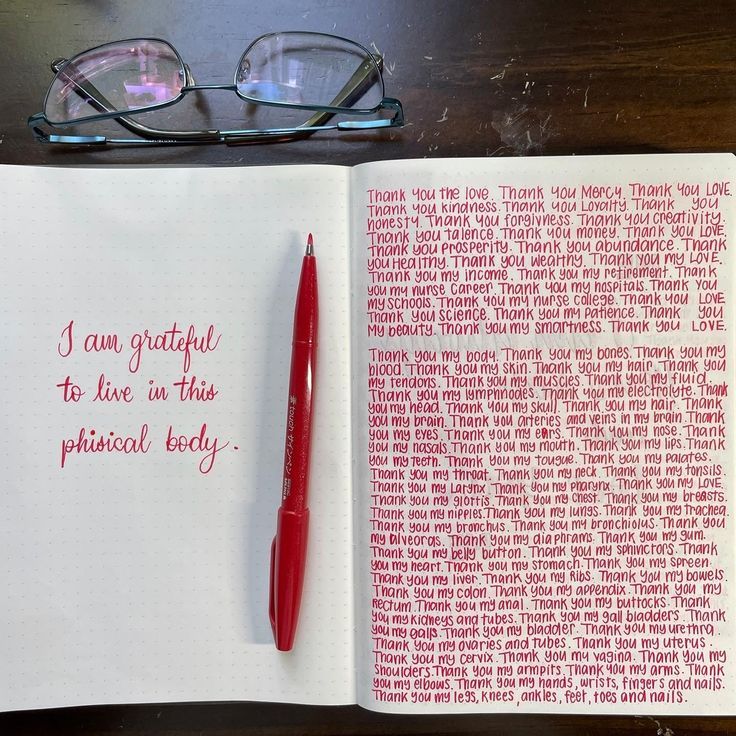 I am grateful
to live in this
phisical body.
touch サインペン
Thank you the love. Thank you Mercy. Thank you LOVE.
Thank you kindness. Thank you Loyalty. Thank you
honesty. Thank you forgivness. Thank you creativity.
Thank you talence. Thank you money. Thank you LOVE.
Thank you prosperity. Thank you abundance. Thank
you Healthy. Thank you wealthy. Thank you my LOVE.
Thank you my income. Thank you my retirement. Thank
you my nurse career. Thank you my hospitals. Thank you
my schools. Thank you my nurse college. Thank you LOVE
Thank you science. Thank you my patience. Thank you
My beauty. Thank you my smartness. Thank you LOVE.
Thank you my body. Thank you my bones. Thank you my
blood. Thank you my skin. Thank you my hair. Thank you
my tendons. Thank you my muscles. Thank you my fluid.
Thank you my lymphnodes. Thank you my electrolyte. Thank
you my head. Thank you my skull. Thank you my hair. Thank
you my brain. Thank you arteries and veins in my brain. Thank
you my eyes. Thank you my ears. Thank you my nose. Thank
you my nasals. Thank you my mouth. Thank you my lips. Thank
you my teeth. Thank you my tongue. Thank you my palates.
Thank you my throat. Thank you my neck. Thank you my tonsils.
Thank you my Larynx. Thank you my pharynx. Thank you my LOVE
Thank you my glottis. Thank you my chest. Thank you my breasts.
Thank you my nipples. Thank you my lungs. Thank you my trachea.
Thank you my bronchus. Thank you my bronchiolus. Thank you
my alveoras. Thank you my diaphrams. Thank you my gum.
Thank you my belly button. Thank you my sphinctors. Thank
you my heart. Thank you my stomach. Thank you my spreen.
Thank you my liver. Thank you my Ribs. Thank you my bowels.
Thank you my colon. Thank you my appendix. Thank you my
Rectum. Thank you my anal. Thank you my buttocks. Thank
you my kidneys and tubes. Thank you my gall bladders. Thank
you my galls. Thank you my bladder. Thank you my urethra.
Thank you my ovaries and tubes. Thank you my uterus.
Thank you my cervix. Thank you my vagina. Thank you my
shoulders. Thank you my armpits. Thank you my arms. Thank
you my elbows. Thank you my hands, wrists, fingers and nails.
Thank you my legs, knees, ankles, feet, toes and nails.